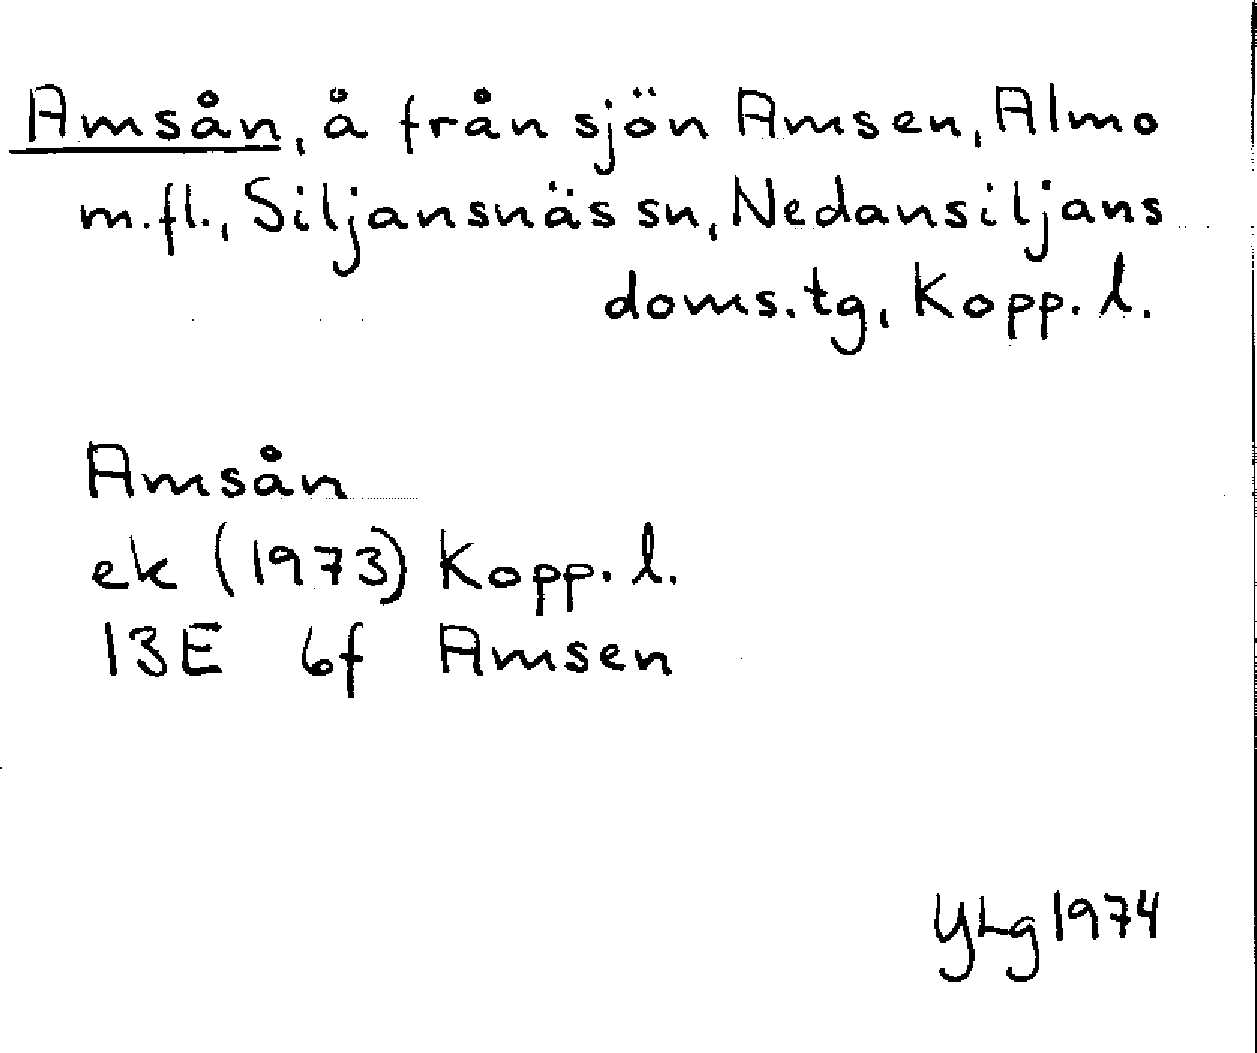 Amsån, å från sjön Amsen, Almo
m.fl., Siljansnäs sn, Nedansiljans
doms.tg, Kopp. l.
Amsån
ek (1973) Kopp. l.
13E 6f Amsen
YLg 1974